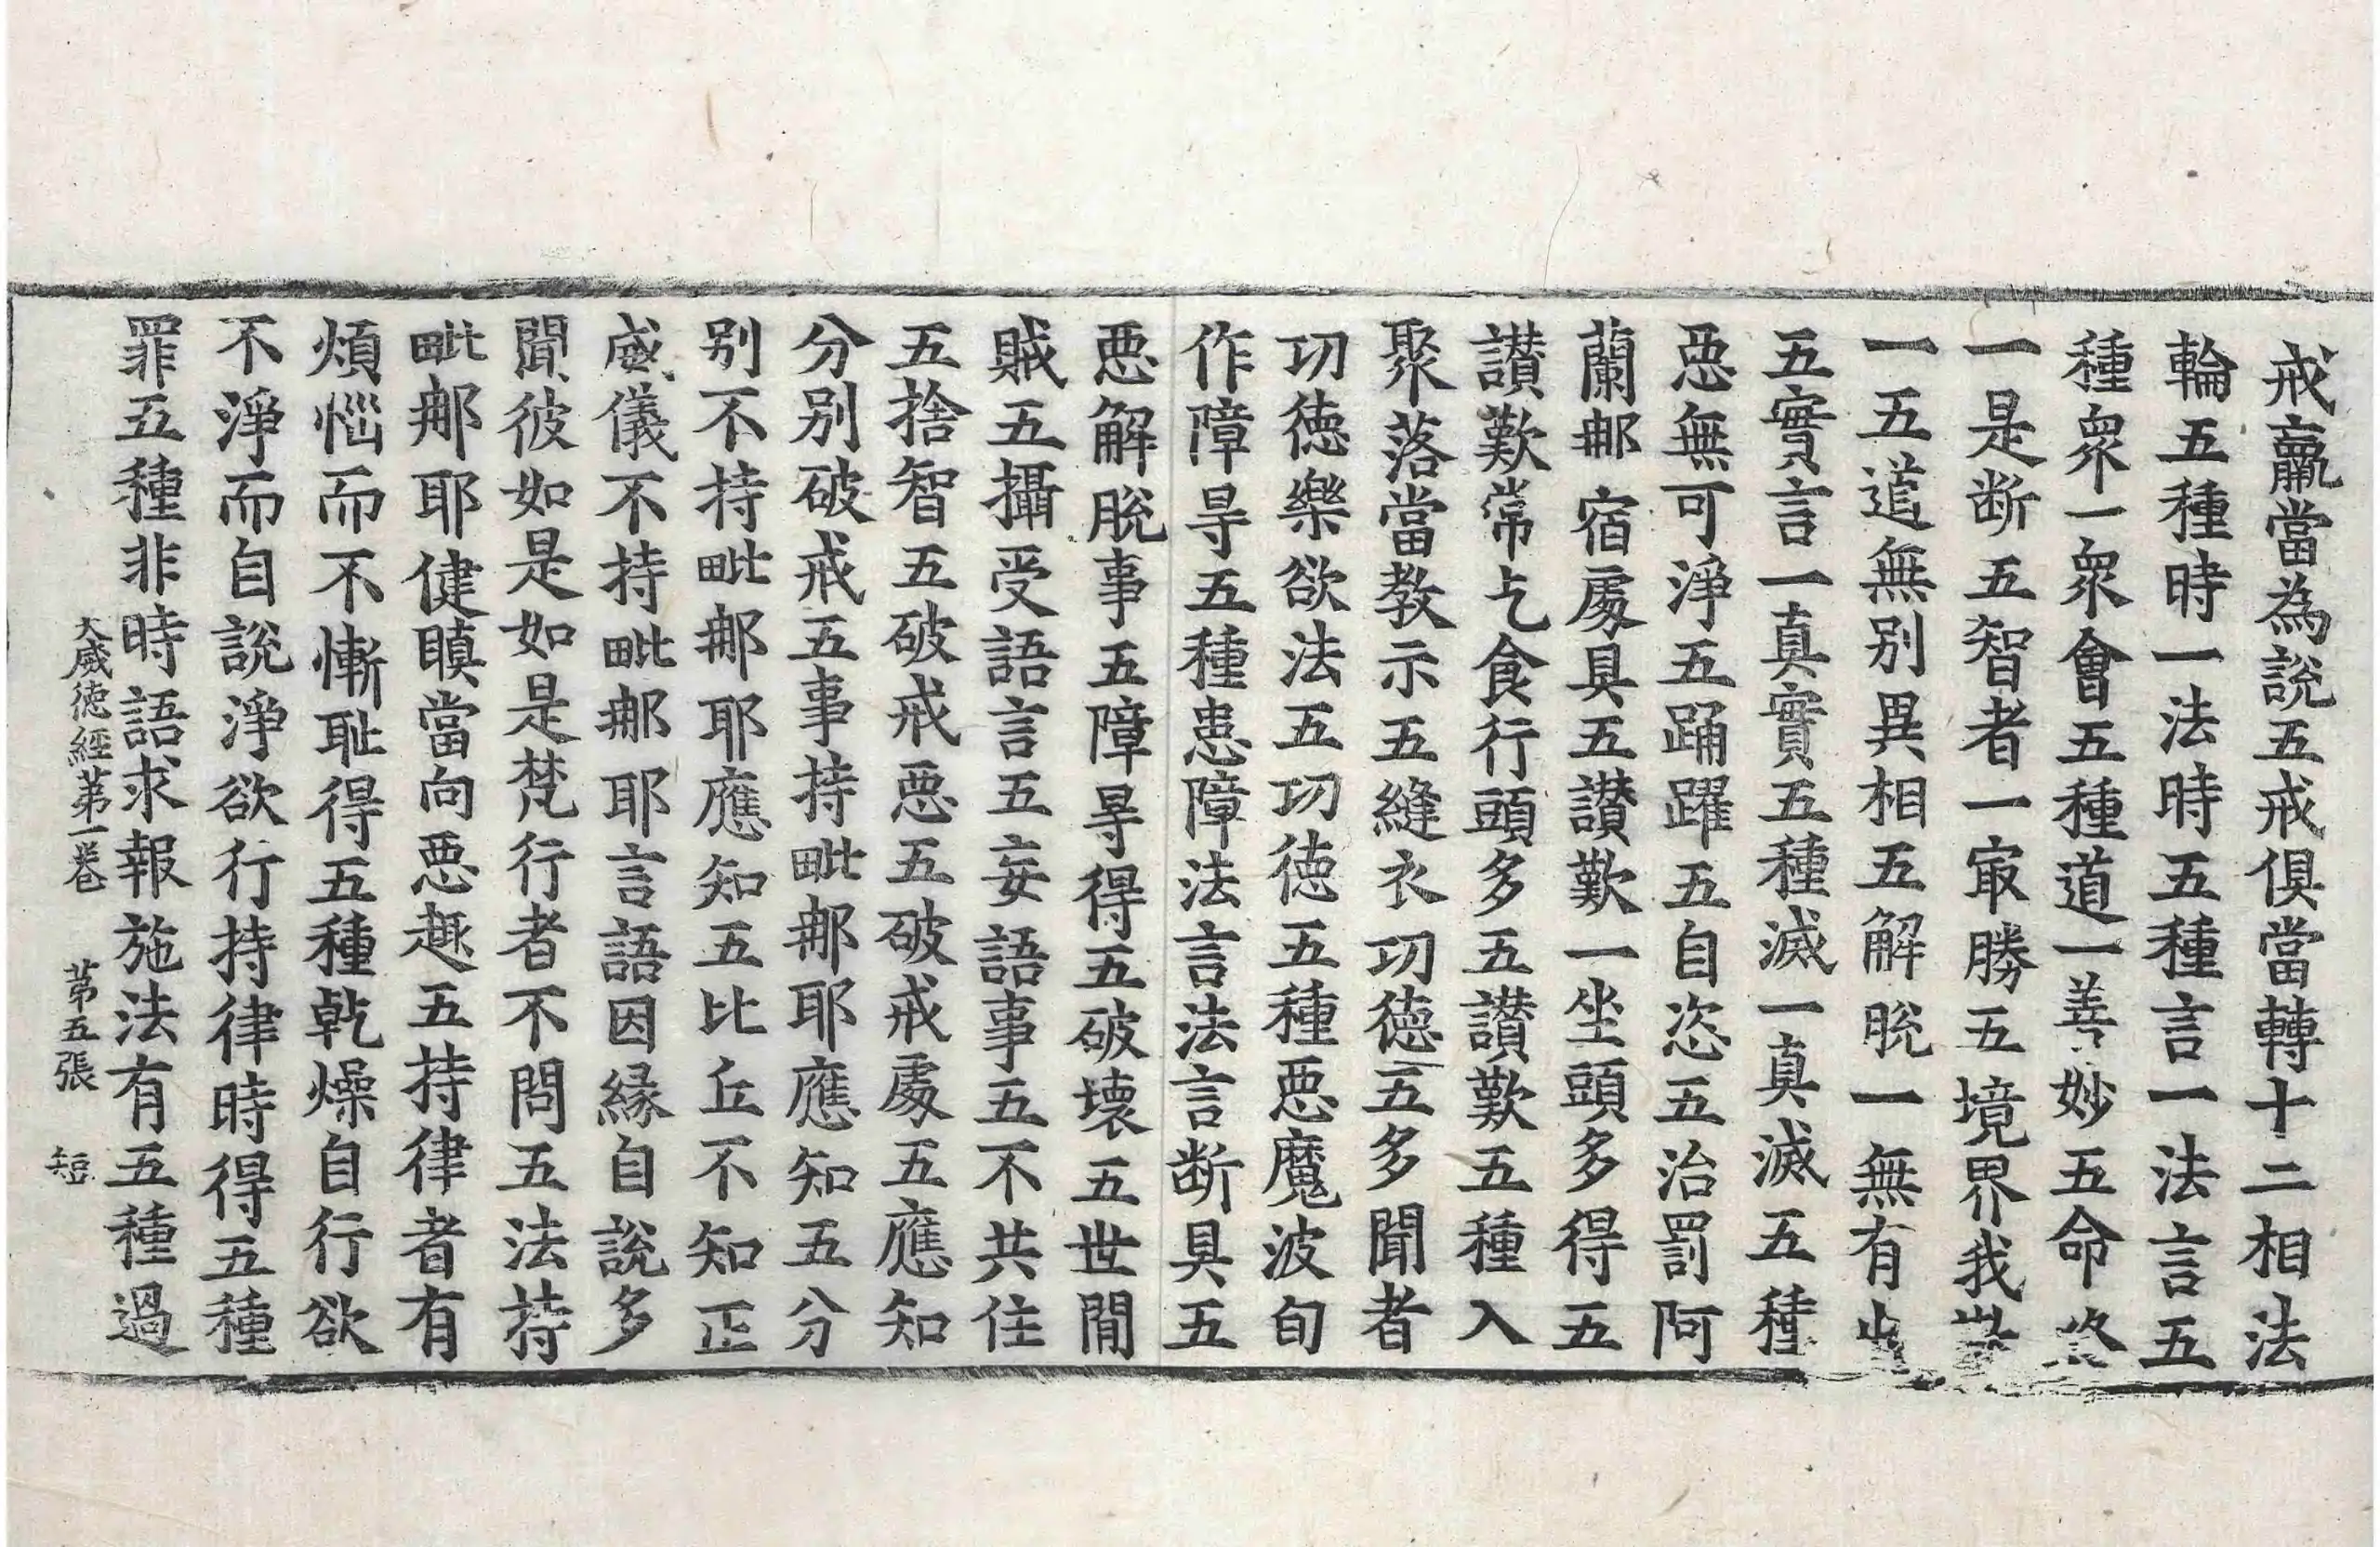 戒羸當為說五戒俱當轉十二相法
輪五種時一法時五種言一法言五
種眾一眾會五種道一善妙五命終
一是断五智者一㝡勝五境界我
一五道無别異相五解脫一無有
五實言一真實五種滅一真滅五種
惡無可淨五踊躍五自恣五治罰阿
蘭那宿處具五讃歎一坐頭多得五
讃歎常乞食行頭多五讃歎五種入
聚落當教示五縫衣功德五多聞者
功德樂欲法五功德五種惡魔波旬
作障㝵五種患障法言法言断具五
惡解脫事五障㝵得五破壞五世閒
賊五攝受語言五妄語事五不共住
五捨智五破戒惡五破戒處五應知
分别破戒五事持毗那耶應知五分
别不持毗那耶應知五比丘不知正
威儀不持毗那耶言語因緣自說多
聞彼如是如是梵行者不問五法持
毗那耶健瞋當向惡趣五持律者有
煩惱而不慚耻得五種乾燥自行欲
不淨而自說淨欲行持律時得五種
罪五種非時語求報施法有五種過
大威德經第一卷 第五張 短